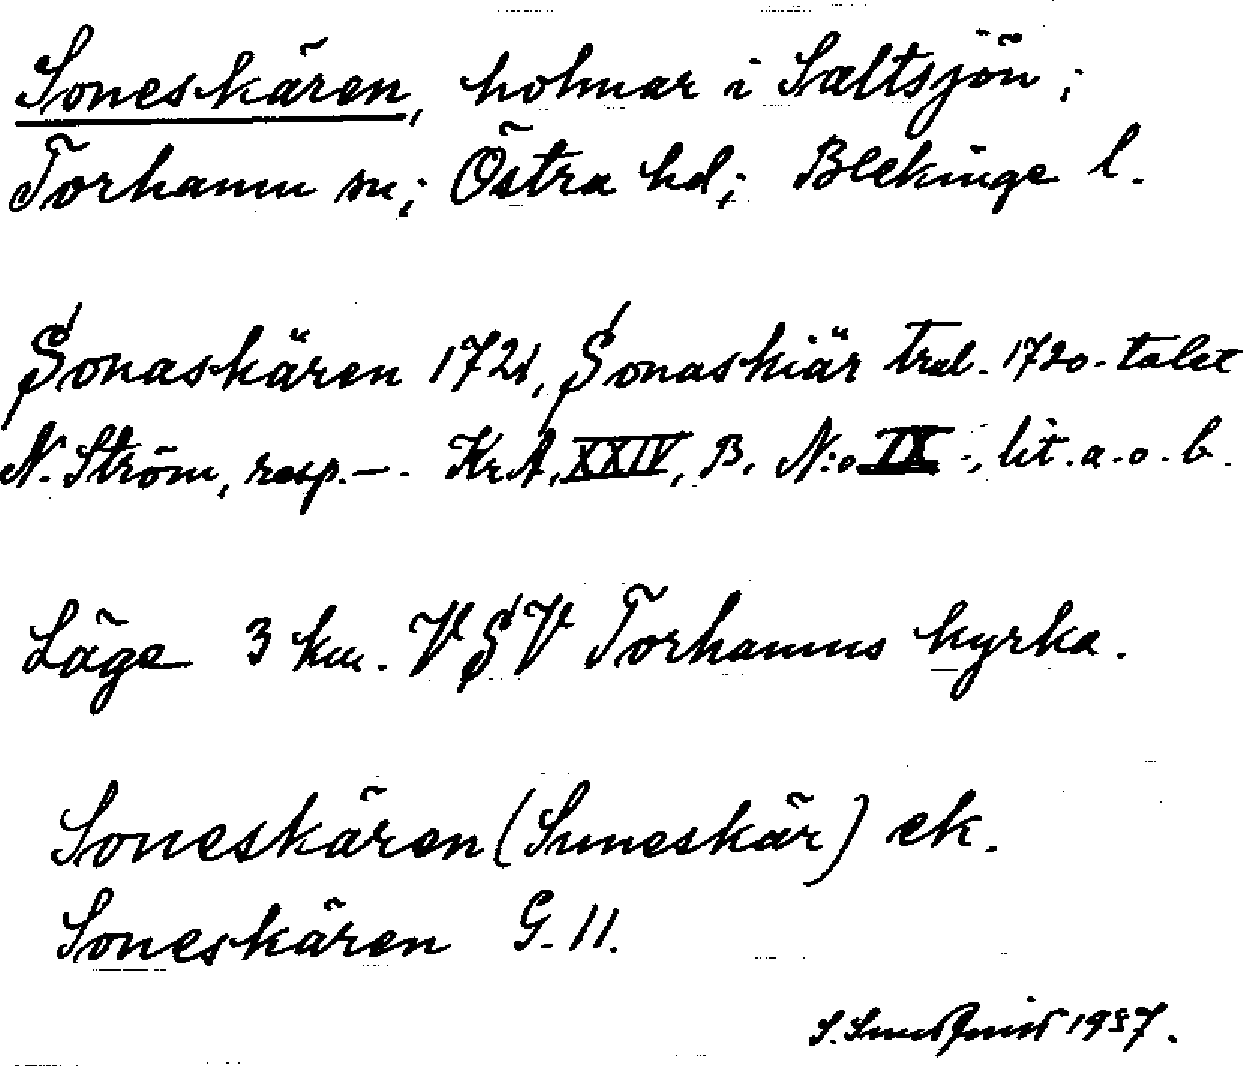 Soneskären, holmar i Saltsjön;
Torhamn sn; Östra hd; Blekinge l.
Sonaskären 1721, Sonaskiär trol. 1720-talet
N. Ström, resp.-. Kr.A. XXIV, B. N:o IX -, lit. a. o. b.
Läge 3 km. VSV Torhamns kyrka.
Soneskären (Suneskär) ek.
Soneskären G. 11.
S. Sundqvist 1937.